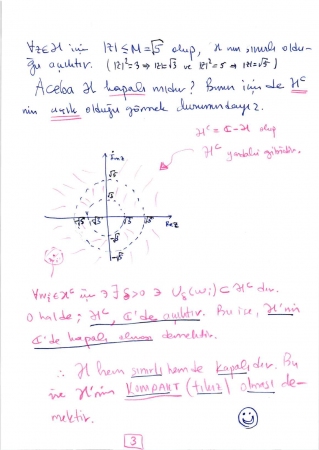 ∀z∈ℋ için |z| ≤ M=√5 olup, ℋ nın sınırlı oldu-
ğu açıktır. (|z|²=3 ⇒ |z|=√3 ve |z|²=5 ⇒ |z|=√5)
Acaba ℋ kapalı mıdır? Bunun için de ℋᶜ
nin açık olduğu görmek durumundayız.
ℋᶜ = ℂ-ℋ olup
ℋᶜ yandaki gibidir.
İmz
√5
√3
-√5 -√3 √3 √5 Rez
-√3
-√5
∀wᵢ∈ℋᶜ için ∃ δ>0 ∋ U_δ(wᵢ)⊂ℋᶜ dır.
O halde; ℋᶜ, ℂ'de açıktır. Bu ise, ℋ'nin
ℂ'de kapalı olması demektir.
∴ ℋ hem sınırlı hem de kapalıdır. Bu
ise ℋ'nin KOMPAKT (tıkız) olması de-
mektir.
3